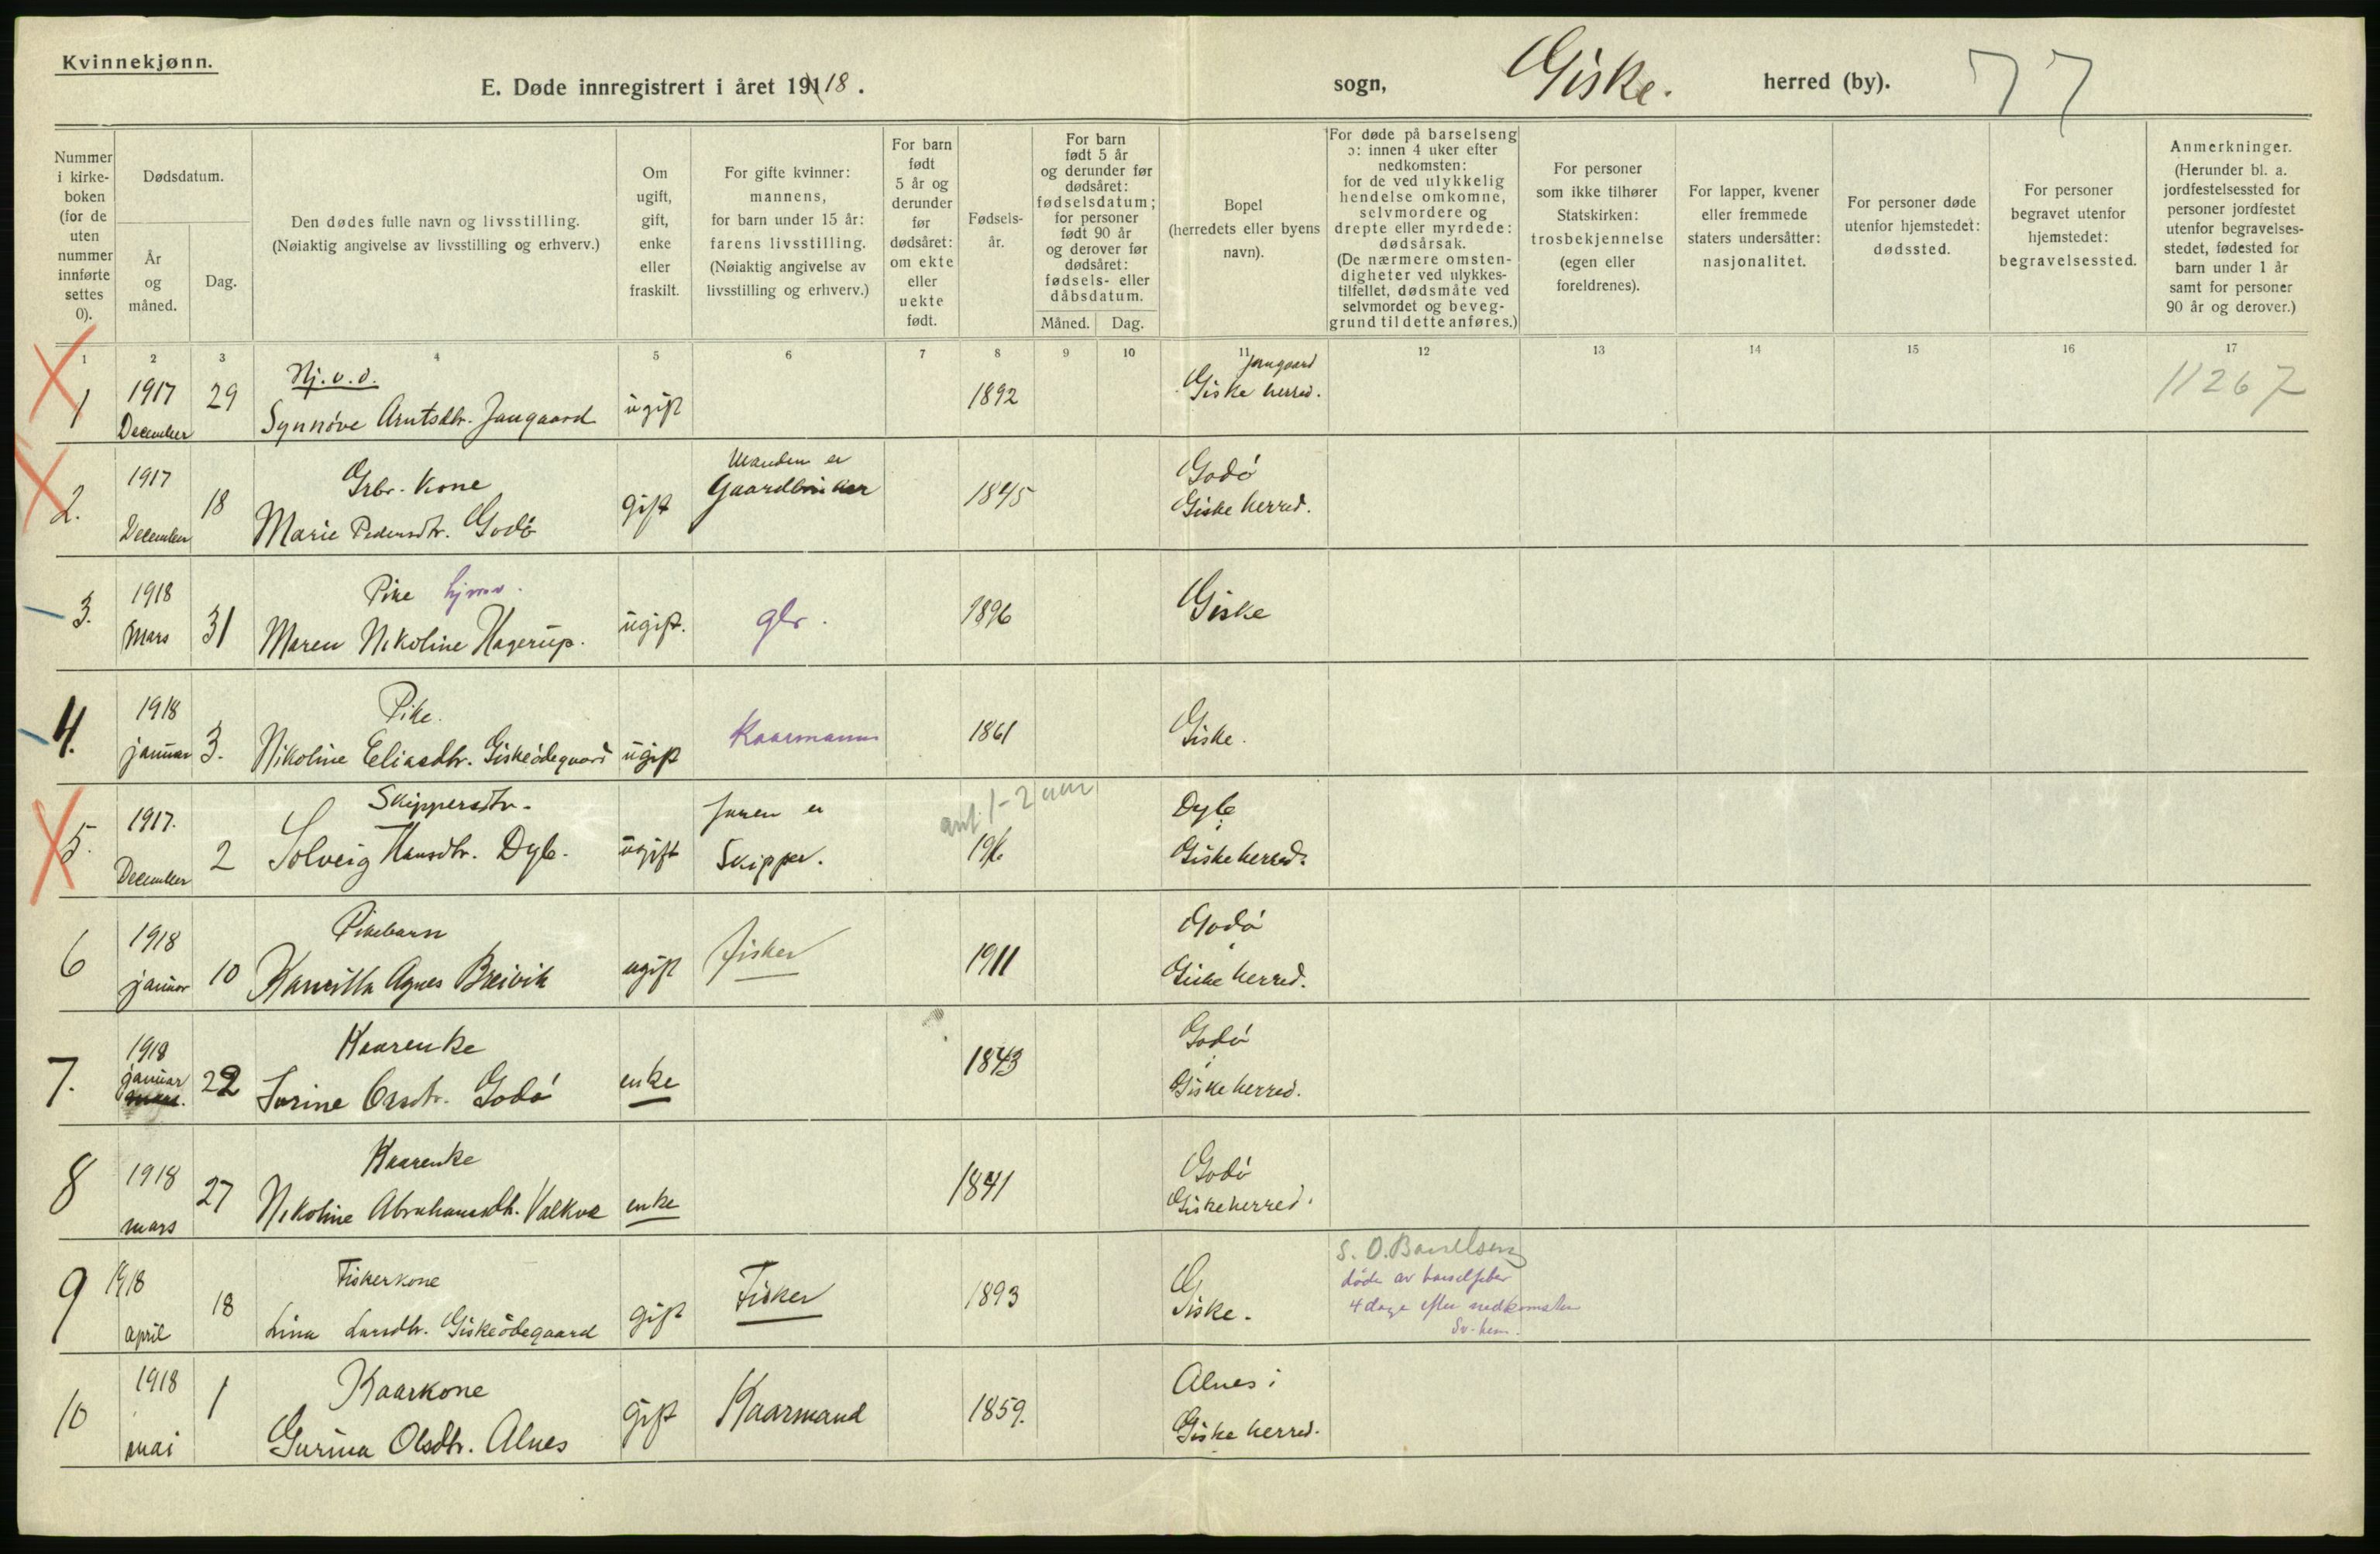 Kvinnekjønn.
E. Døde innregistrert i året 19118.
sogn, Giske. herred (by). 77
Nummer i kirke-boken (for de uten nummer innførte settes 0).
Dødsdatum.
År og måned.
Dag.
Den dødes fulle navn og livsstilling.
(Nøiaktig angivelse av livsstilling og erhverv.)
Om ugift, gift, enke eller fraskilt.
For gifte kvinner: mannens, for barn under 15 år: farens livsstilling.
(Nøiaktig angivelse av livsstilling og erhverv.)
For barn født 5 år og derunder før dødsåret: om ekte eller uekte født.
Fødsels-år.
For barn født 5 år og derunder før dødsåret: fødselsdatum; for personer født 90 år og derover før dødsåret: fødsels- eller dåbsdatum.
Måned. Dag.
Bopel (herredets eller byens navn).
For døde på barselseng ɔ: innen 4 uker efter nedkomsten: for de ved ulykkelig hendelse omkomne, selvmordere og drepte eller myrdede: dødsårsak.
(De nærmere omsten-digheter ved ulykkes-tilfellet, dødsmåte ved selvmordet og beveg-grund til dette anføres.)
For personer som ikke tilhører Statskirken: trosbekjennelse (egen eller foreldrenes).
For lapper, kvener eller fremmede staters undersåtter: nasjonalitet.
For personer døde utenfor hjemstedet: dødssted.
For personer begravet utenfor hjemstedet: begravelsessted.
Anmerkninger.
(Herunder bl. a. jordfestelsessted for personer jordfestet utenfor begravelses-stedet, fødested for barn under 1 år samt for personer 90 år og derover.)
1 2 3 4 5 6 7 8 9 10 11 12 13 14 15 16 17
Hj. v. d. Jangaard
1 1917 29 ugift 1892 Giske herred. 11267
December Synnøve Arntsdtr. Jangaard
1917 Grbr. Kone Manden er Godø
2. 18 gift Gaardbruker 1845 Giske herred.
December Marie Pedersdtr. Godø
1918 Pike hjmv.
3. 31 ugift. gbr. 1896 Giske
Mars Maren Nikoline Hagerup.
1918 Pike.
4. 3. ugift Kaarmann 1861 Giske.
januar Nikoline Eliasdtr. Giskeødegaard
1917. Skippersdtr. Faren er ant. 1-2 aar Dyb
5. 2 Solveig Hansdtr. Dyb. ugift Skipper. 1916 Giske herred.
December
1918 Pikebarn Godø
6 10 ugift fisker 1911 Giske herred.
januar Agnes Breivik
1918 Kaarenke Godø
7. januar 22 enke 1843 Giske herred.
Godø
Kaarenke Godø
8 1918 27 enke 1841 Giske herred.
mars Nikoline Abrahamsdtr. Valkvæ
1918 Fiskerkone S. O. Barselseng
9 18 gift Fisker 1893 Giske. døde av barselfeber
april Lina Larsdtr. Giskeödegaard 4 dage efter nedkomsten
1918 Kaarkone Alnes i
10 1 gift Kaarmand 1859. Giske herred.
mai Gurina Olsdtr. Alnes